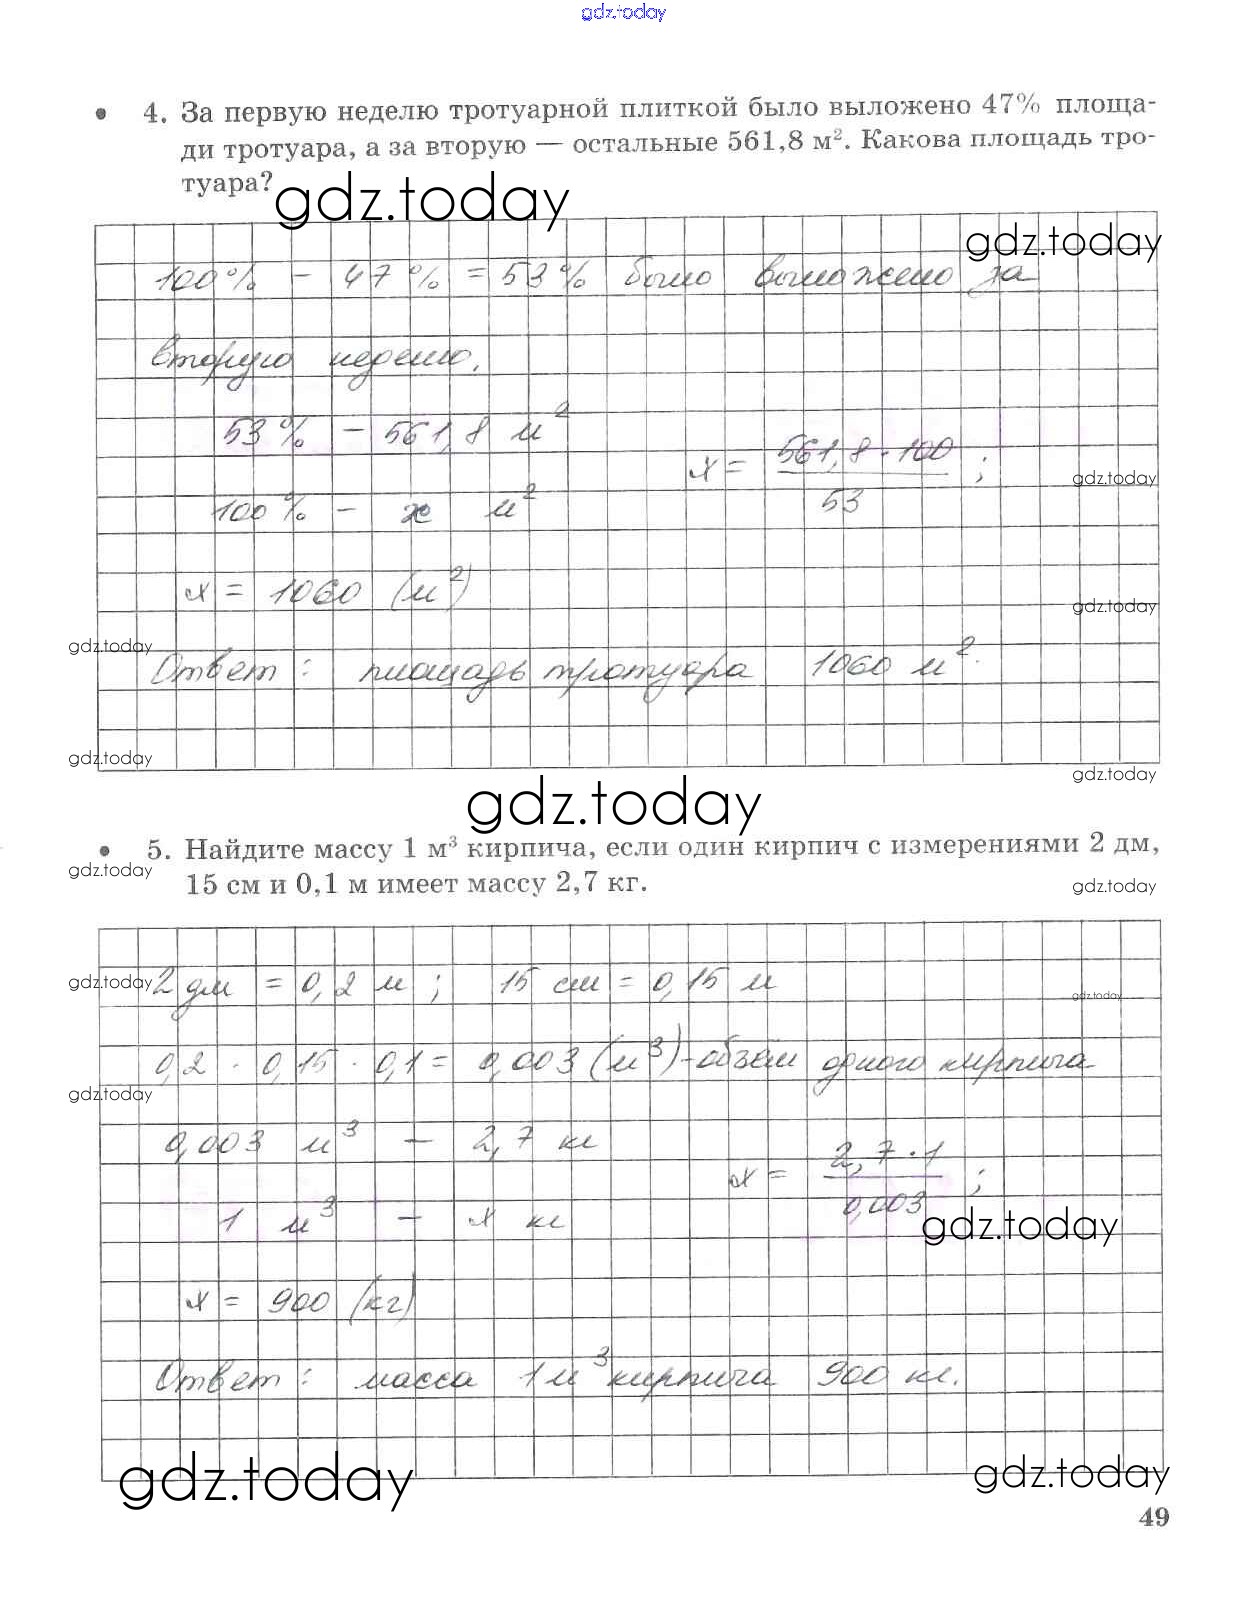 gdz.today
4. За первую неделю тротуарной плиткой было выложено 47% площа-
ди тротуара, а за вторую — остальные 561,8 м². Какова площадь тро-
туара?
gdz.today
gdz.today
100% - 47% = 53% было выложено за
вторую неделю.
53% - 561,8 м²
x = 561,8 · 100 / 53 ;
gdz.today
100% - x м²
x = 1060 (м²)
gdz.today
gdz.today
Ответ: площадь тротуара 1060 м².
gdz.today
gdz.today
gdz.today
5. Найдите массу 1 м³ кирпича, если один кирпич с измерениями 2 дм,
15 см и 0,1 м имеет массу 2,7 кг.
gdz.today
gdz.today
gdz.today
2 дм = 0,2 м; 15 см = 0,15 м
gdz.today
0,2 · 0,15 · 0,1 = 0,003 (м³) - объём одного кирпича
gdz.today
0,003 м³ - 2,7 кг
x = 2,7 · 1 / 0,003 ;
1 м³ - x кг
gdz.today
x = 900 (кг)
Ответ: масса 1 м³ кирпича 900 кг.
gdz.today
gdz.today
49